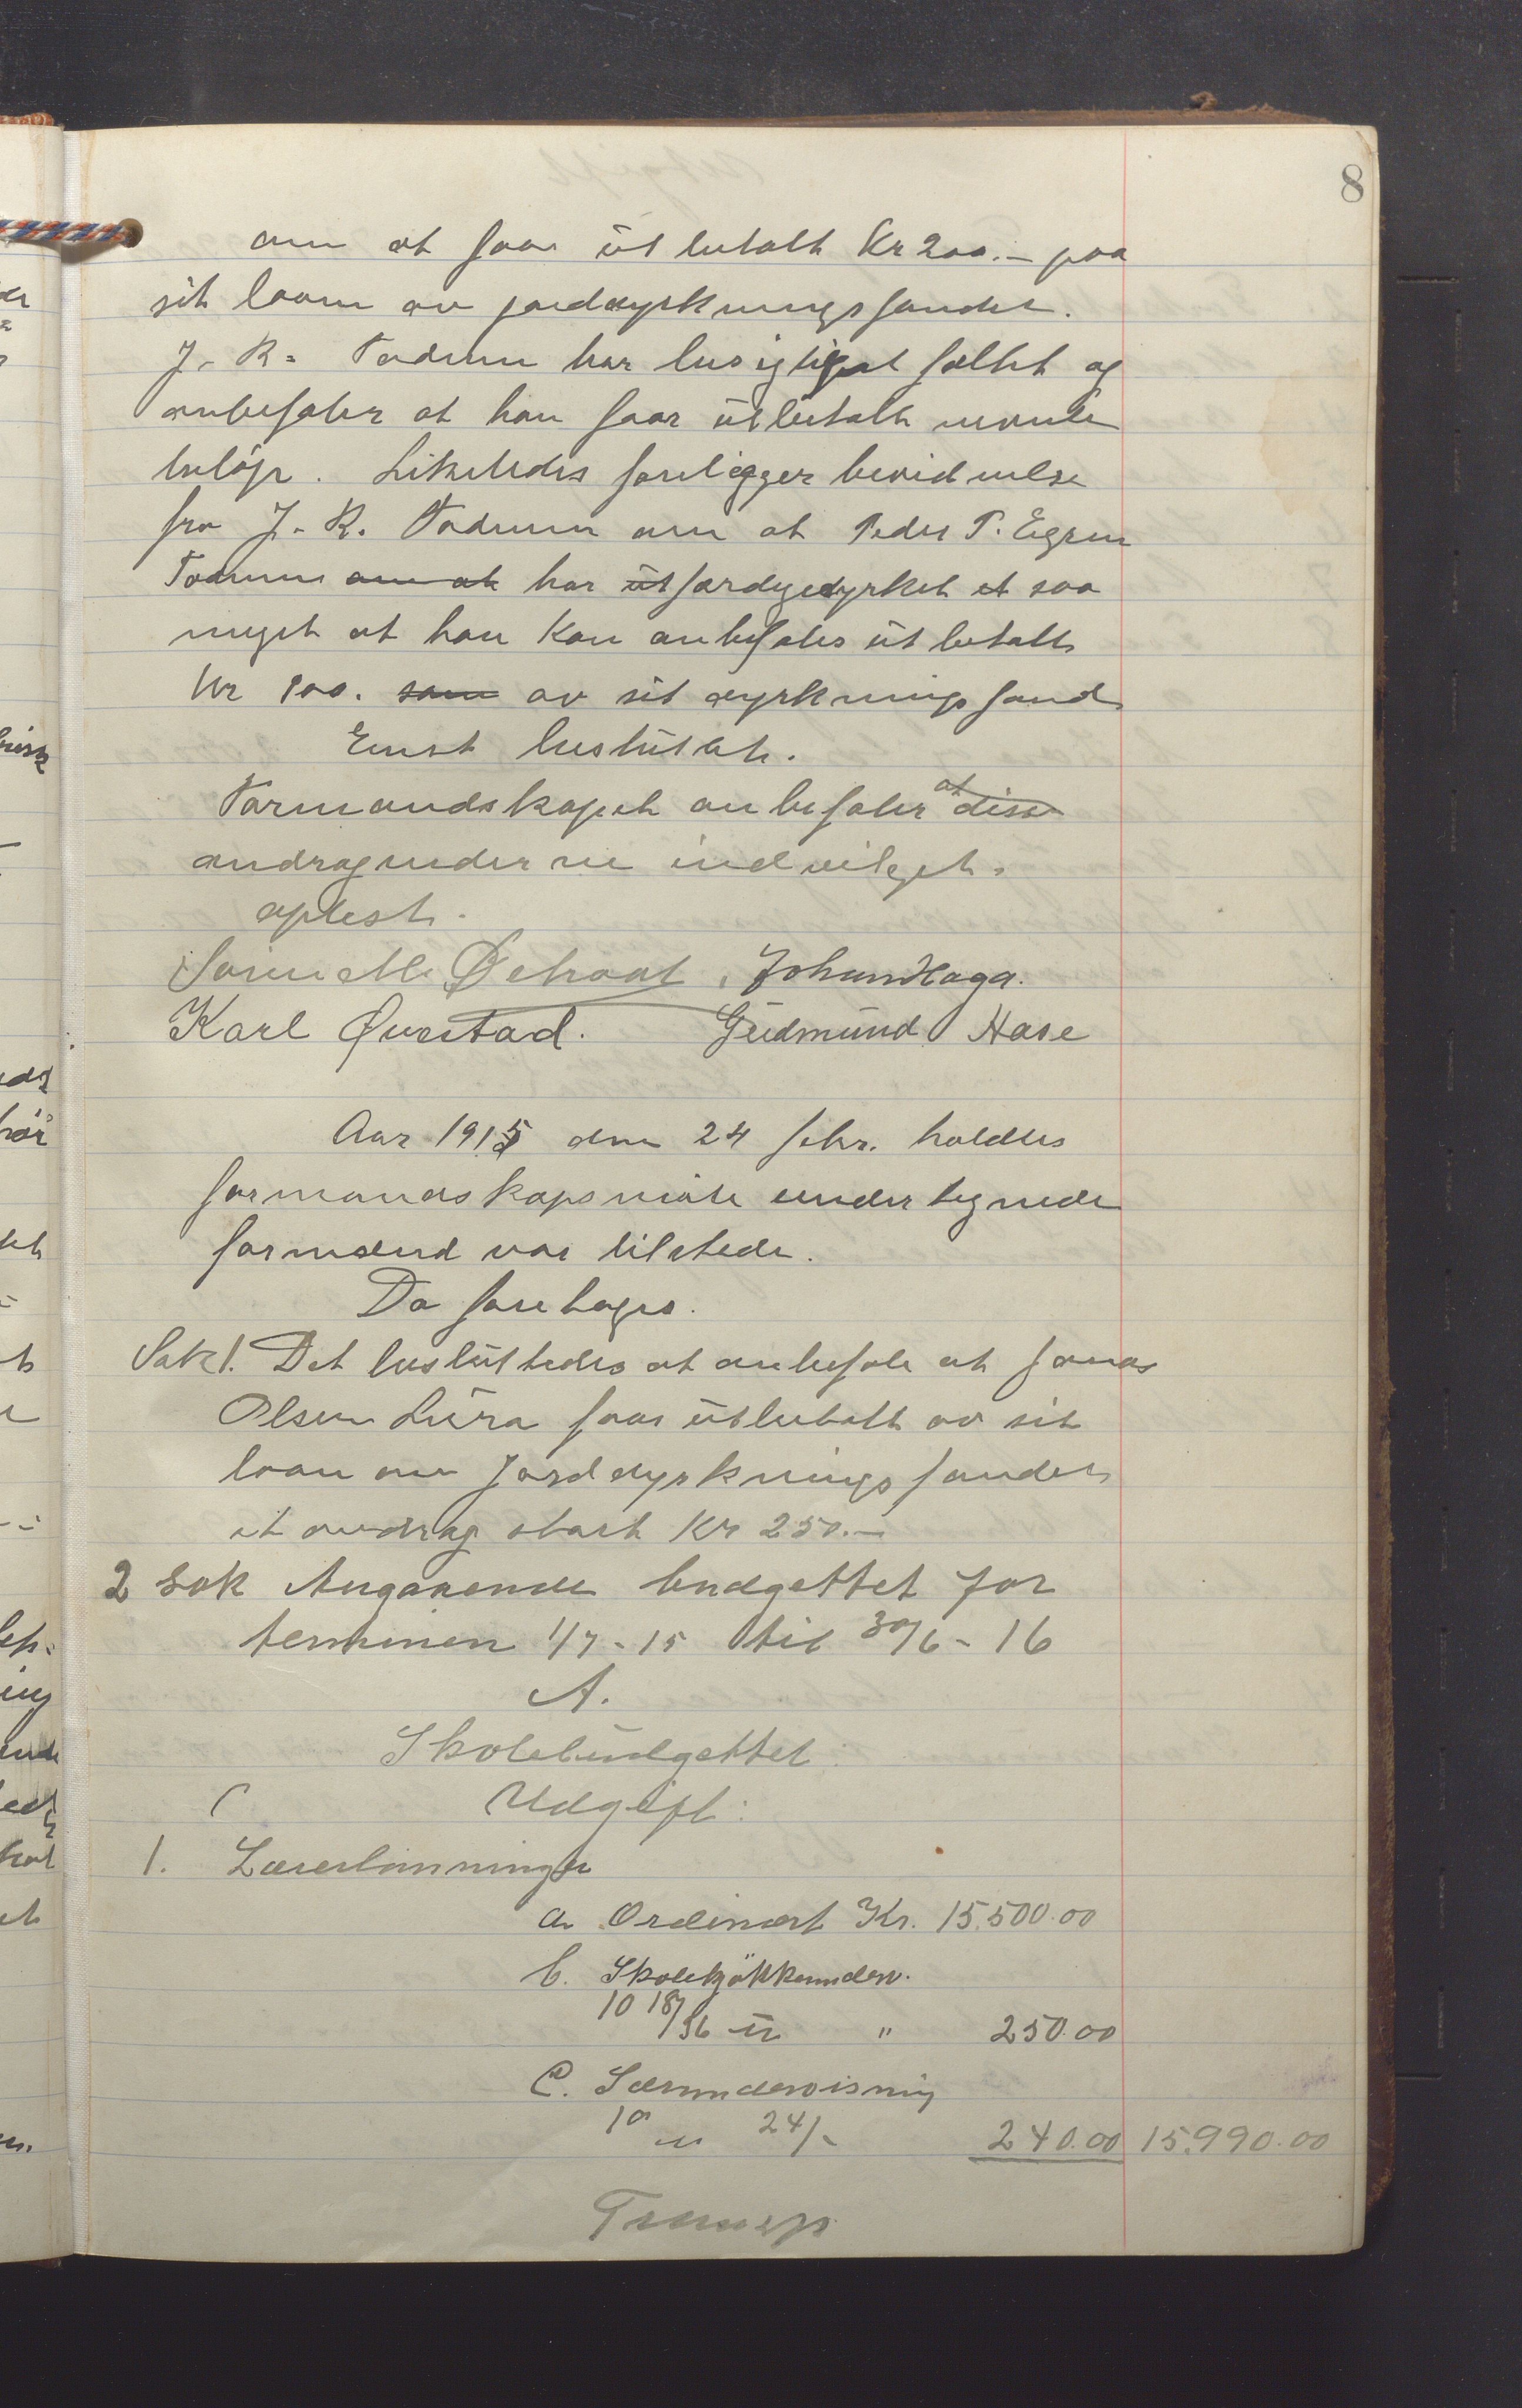 8
om at faa ut betalt Kr 200.- paa
sit laan av jorddyrkningsfondet.
J. R. Fodnun har besigtiget feltet og
anbefaler at han faar utbetalt nevnte
beløp. Likeledes foreligger bevidnelse
fra J. R. Fodnun om at Peder T.
om at har ut færdigdyrket et saa
meget at han kan anbefales ut betalt
Kr 100. som av sit dyrkningsfond
Enst beslutet.
Formandskapet anbefaler at disse
andragender ne indvilget.
oplest.
Johan Haga.
Karl Qverstad. Gudmund Hase
Aar 1915 den 24 febr. holdtes
formandskapsmøte undertegnede
formænd var tilstede.
Da foretoges.
Sak 1. Det besluttedes at anbefale at Jonas
Olsen Lura faar utbetalt av sit
laan av Jorddyrkningsfondet
et andrag stort Kr 250.-
2 Sak Angaaende budgettet for
terminen 1/7-15 til 30/6-16
A.
Skolebudgettet:
Udgift:
1. Lærerlønninger
a. Ordinært Kr. 15.500.00
b. Skolekjökkenunderv.
10 18/36 u " 250.00
C. Særundervisning
10 u 24/- 240.00 15.990.00
Transp.